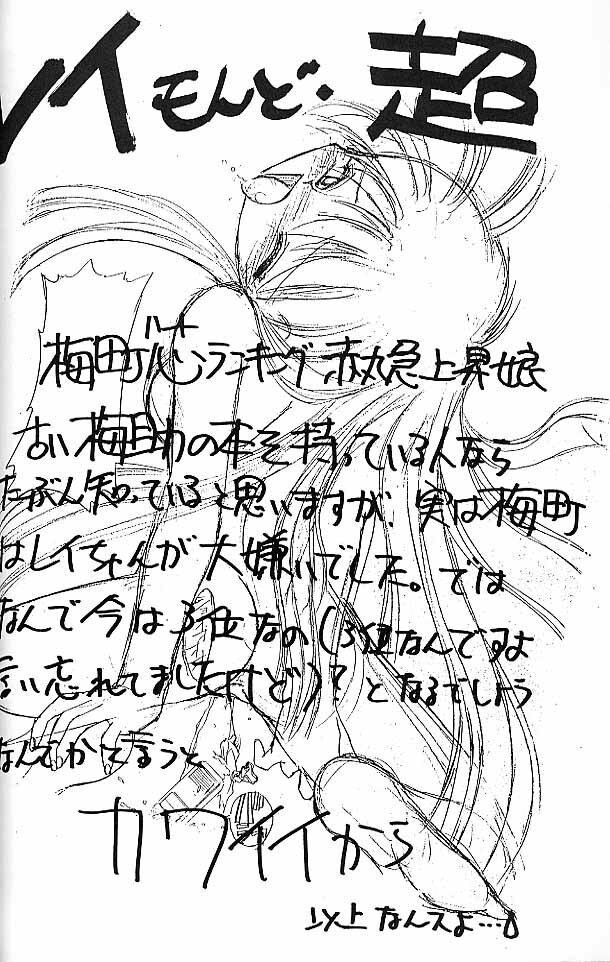 レイモんど・超
梅町心ランキング赤丸急上昇娘
ハート
古い梅町の本を持っている人なら
たぶん知っていると思いますが、実は梅町
はレイちゃんが大嫌いでした。では
なんで今は3位なの(3位なんですよ
言い忘れてましたけど)?となるでしょう
なんでかと言うと
カワイイから
以上なんスよ…。